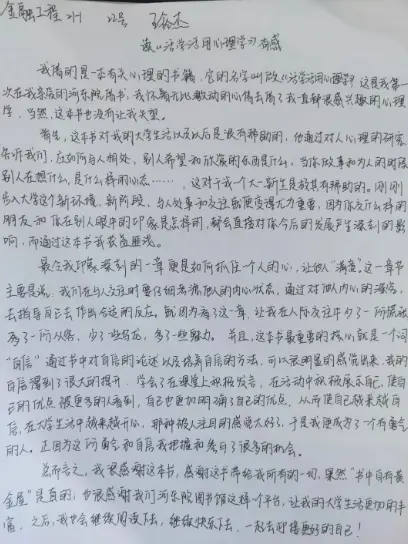 金融工程 211 22号
读《活学活用心理学》有感
我借的是一本有关心理的书籍，它的名字叫做《活学活用心理学》这是我第
一次在我亲爱的河东院借书，我怀着无比激动的心情去借了我一直都很感兴趣的心理
学，当然，这本书也没有让我失望。
首先，这本书对我的大学生活以及以后是很有帮助的，他通过对人心理的研究
告诉我们，应如何与人相处，别人希望和欣赏的东西是什么，当你做事和为人的时候
别人在想什么，是什么样的心态……，这对于我一个大一新生是极其有帮助的。刚刚
步入大学这个新环境，新阶段，与人处事和交往就更变得尤为重要，因为你交什么样的
朋友和你在别人眼中的印象是怎样的，都会直接对你今后的发展产生深刻的影
响，而通过这本书我获益匪浅。
最令我印象深刻的一章便是如何抓住一个人的心，让他人"满意"这一章节
主要是说，我们在与人交往时要仔细考虑他人的内心状态，通过对他人内心的
去指导自己去作出合适的反应。就因为看了这一章，让我在人际交往中少了一所
多了一所从容，少了些
，多了些魅力。并且，这本书最重要的核心就是一个词
"自信"通过书中对自信的论述以及培养自信的方法，可以很明显的感觉出来，我的
自信得到了很大的提升，学会了在课堂上积极发言，在活动中积极展示自己，使自
己的优点被更多的人看到，自己也更加明确了自己的优点，从而使自己越来越自
信，在大学生活中越来越开心，那种被人注目的感觉太好了，于是我便成为了一个有勇气
的人。正因为这所勇气和自信我把握和参与了很多的机会。
总而言之，我很感谢这本书，感谢这本书带给我所有的一切，果然"书中自有黄
金屋"是真的，也很感谢我们河东院图书馆这样一个平台，让我的大学生活更加的丰
富，之后，我也会继续阅读下去，继续快乐下去，一起去迎接更好的自己！